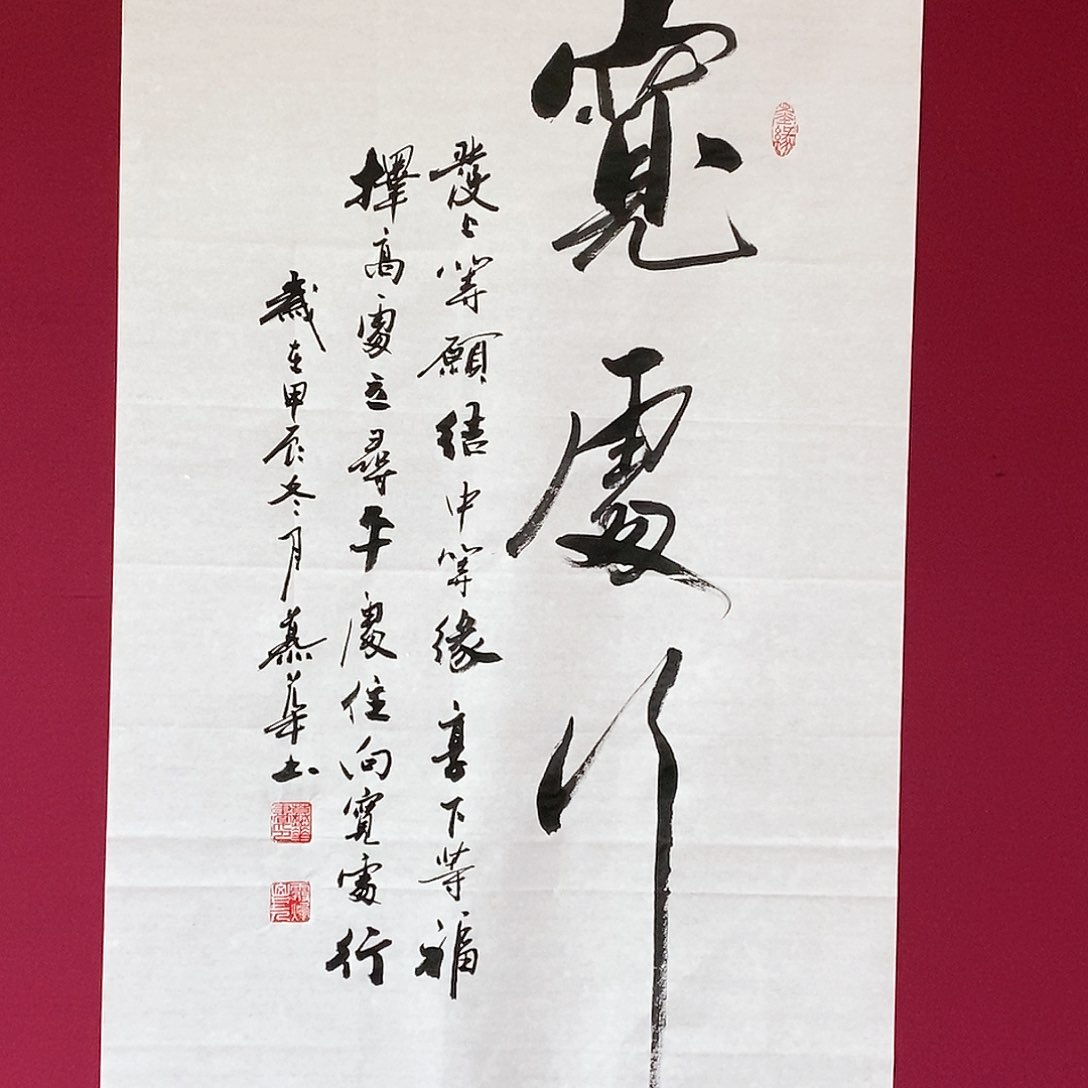 寬處行
發上等願結中等緣享下等福
擇高處立尋平處住向寬處行
歲在甲辰冬月慕華书
墨緣